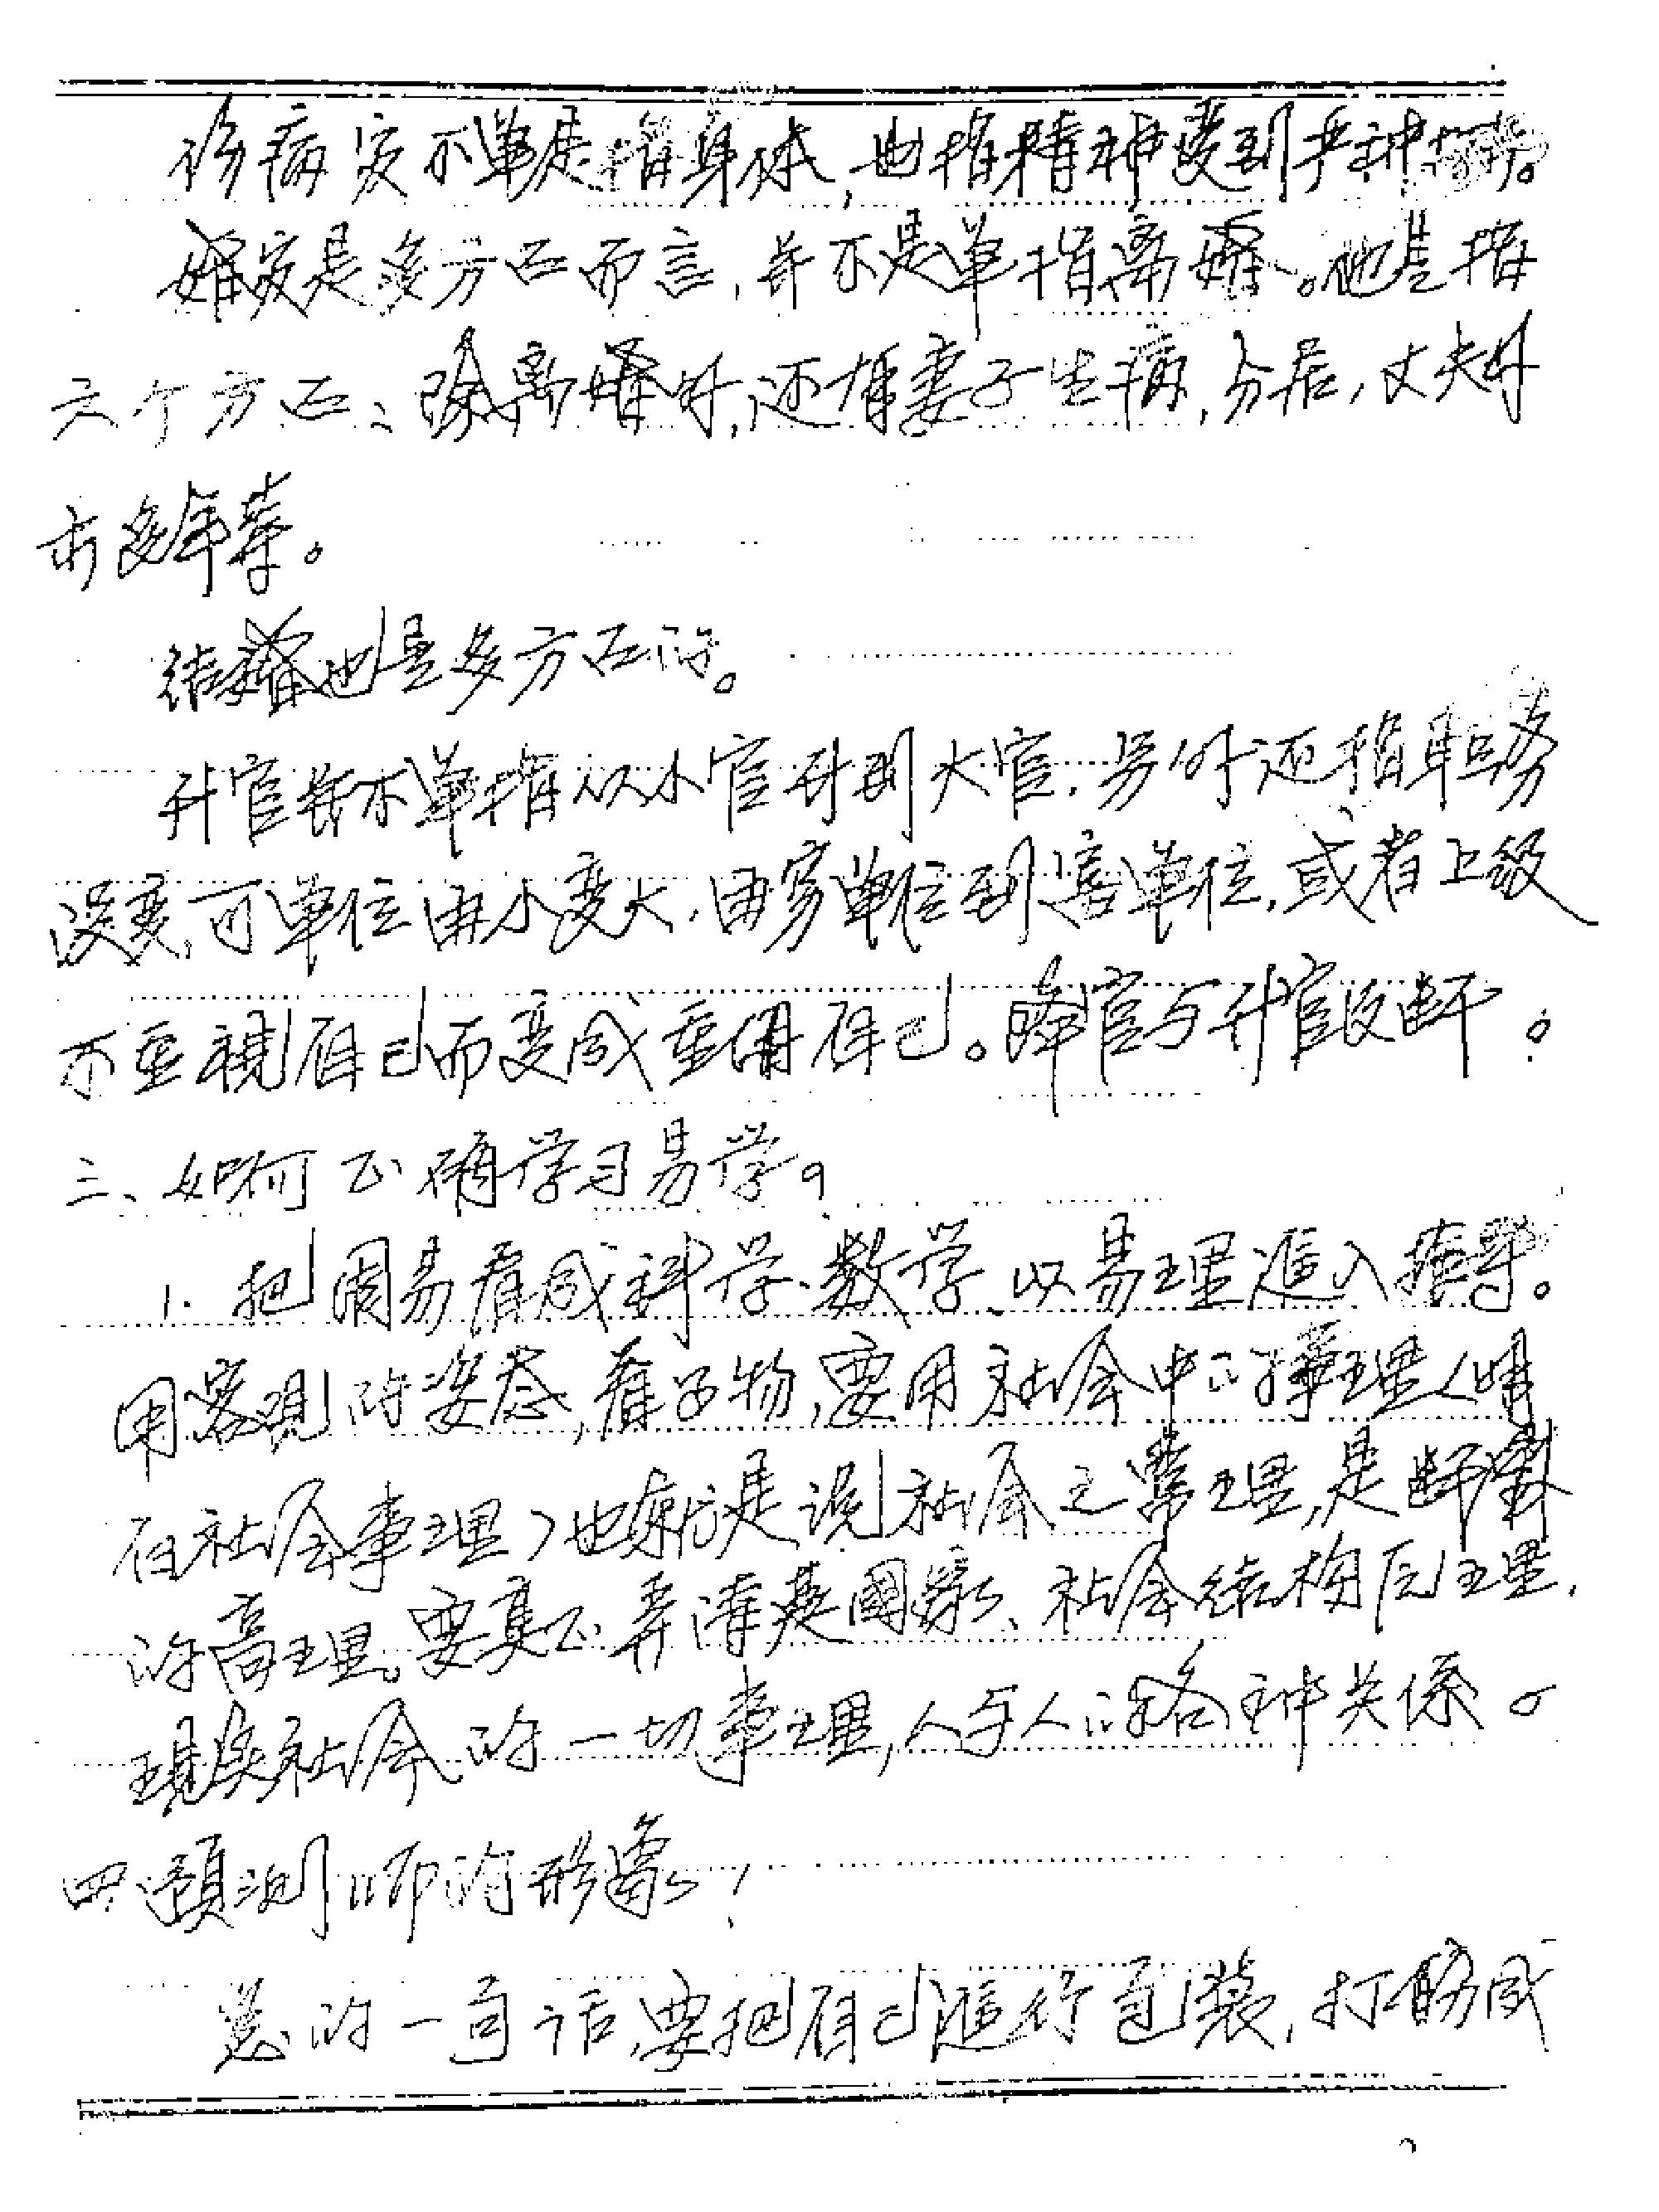 伤病灾不单是指身体，也指精神受到某种
婚灾是多方面而言，并不是单指离婚。他是指
六个方面：除离婚外，还有妻子生病，分居，丈夫外
出多年等。
结婚也是多方面的。
升官并不单指从小官升到大官，另外还指职务
没变，可单位由小变大，由穷单位到富单位，或者上级
不重視自己而变成重用自己。降官与升官反断。
三、如何正确学习易学。
1. 把周易看成科学、数学、以易理進入指导。
用客观的姿态，看事物，要用社会中的事理（明
白社会事理）也就是说社会之常理，是断卦
的高理。要真正弄清楚國家、社会结构原理，
現实社会的一切事理，人与人的各种关係。
四、預测师的形象！
总的一句话，要把自己進行包装，打扮成